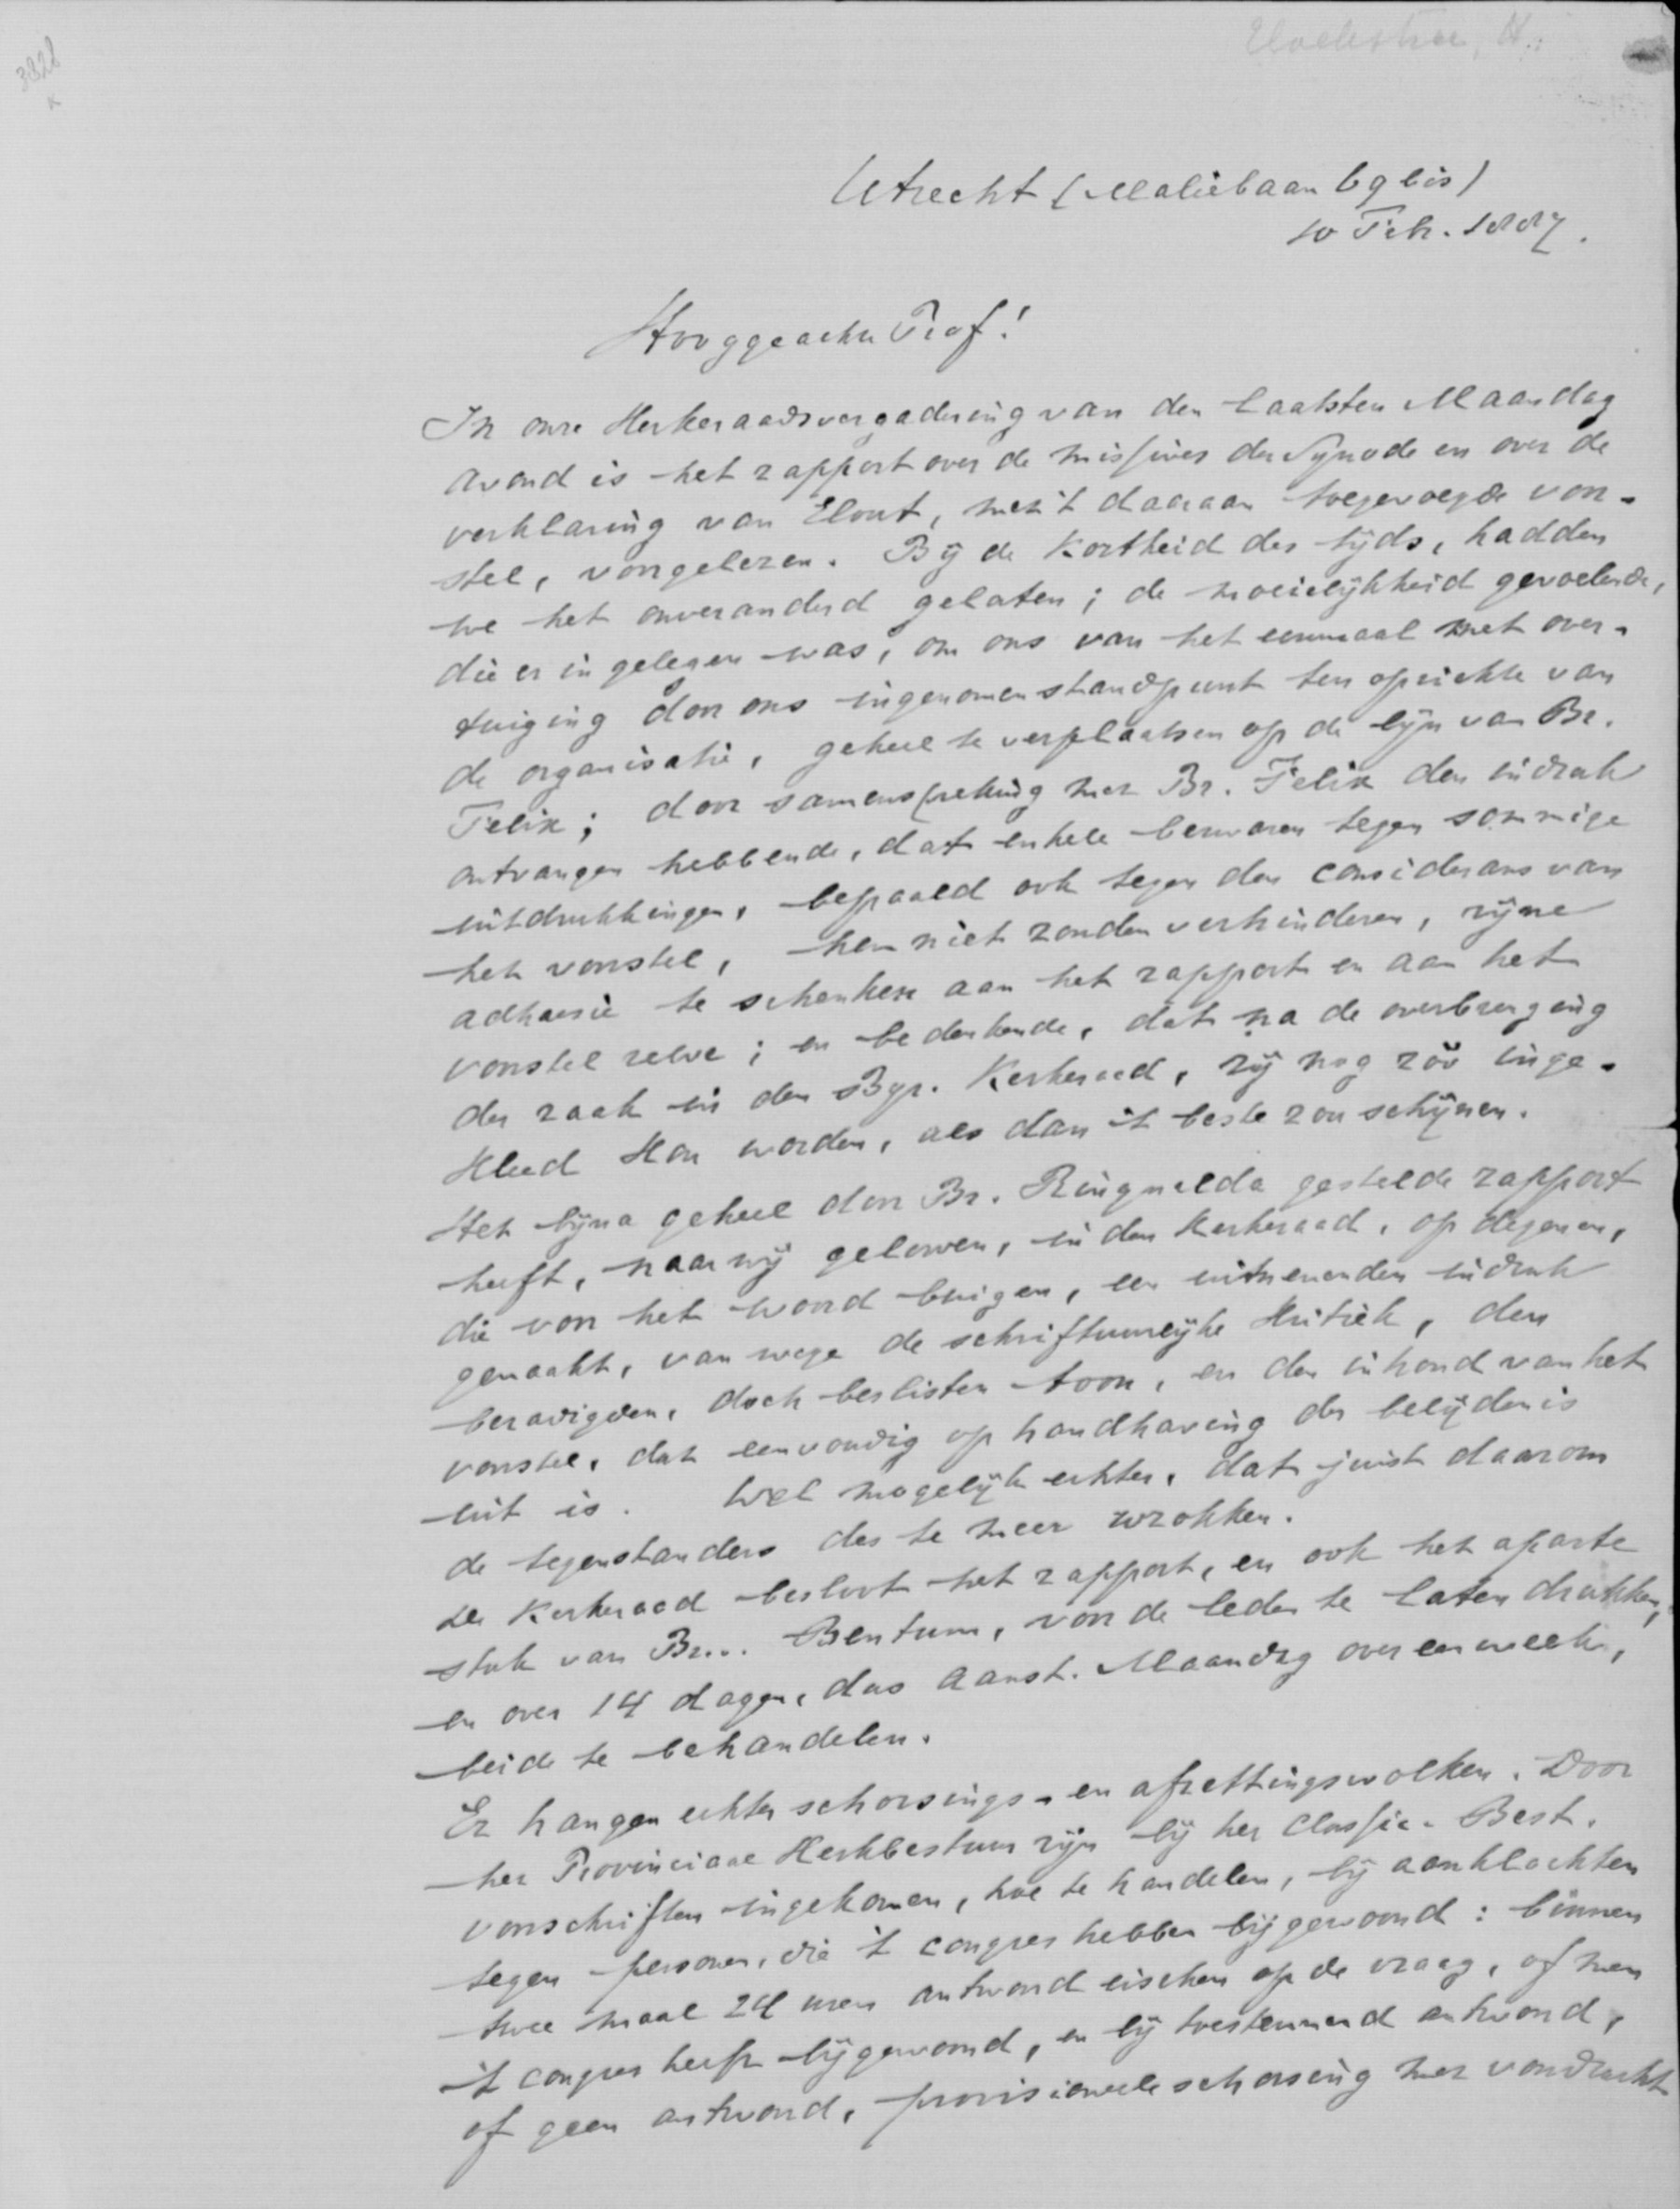 3828
Utrecht (Maliebaan 69 bis)
10 Feb. 1887.
Hooggeachte Prof!
In onze Kerkeraadsvergadering van den laatsten Maandag
avond is het rapport over de missives der Synode en over de
verklaring van Elout, met 't daaraan toegevoegde voor-
stel, voorgelezen. Bij de kortheid des tijds, hadden
we het onveranderd gelaten; de moeielijkheid gevoelende,
die er in gelegen was, om ons van het eenmaal met over-
tuiging door ons ingenomen standpunt ten opzichte van
de organisatie, geheel te verplaatsen op de lijn van Br.
Felix; door samenspreking met Br. Felix den indruk
ontvangen hebbende, dat enkele bezwaren tegen sommige
uitdrukkingen, bepaald ook tegen den considerans van
het voorstel, hem niet zouden verhinderen, zijne
adhaesie te schenken aan het rapport en aan het
voorstel zelve; en bedenkende, dat na de overbrenging
der zaak in den Bijz. Kerkeraad, zij nog zóó inge-
kleed kon worden, als dan 't beste zou schijnen.
Het bijna geheel door Br. Ringnalda gestelde rapport
heeft, naar wij gelooven, in den Kerkeraad, op degenen,
die voor het woord buigen, een uitnemenden indruk
gemaakt, van wege de schriftuurlijke kritiek, den
bezadigden, doch beslisten toon, en den inhoud van het
voorstel, dat eenvoudig op handhaving der belijdenis
uit is. Wel mogelijk echter, dat juist daarom
de tegenstanders des te meer wrokken.
De Kerkeraad besloot het rapport, en ook het aparte
stuk van Br... Bentum, voor de leden te laten drukken,
en over 14 dagen, dus aanst. Maandag over een week,
beide te behandelen.
Er hangen echter schorsings- en afzettingswolken. Door
het Provinciaal Kerkbestuur zijn bij het Classic. Best.
voorschriften ingekomen, hoe te handelen, bij aanklachten
tegen personen, die 't congres hebben bijgewoond: binnen
twee maal 24 uren antwoord eischen op de vraag, of men
't congres heeft bijgewoond, en bij toestemmend antwoord,
of geen antwoord, provisioneele schorsing met voordracht